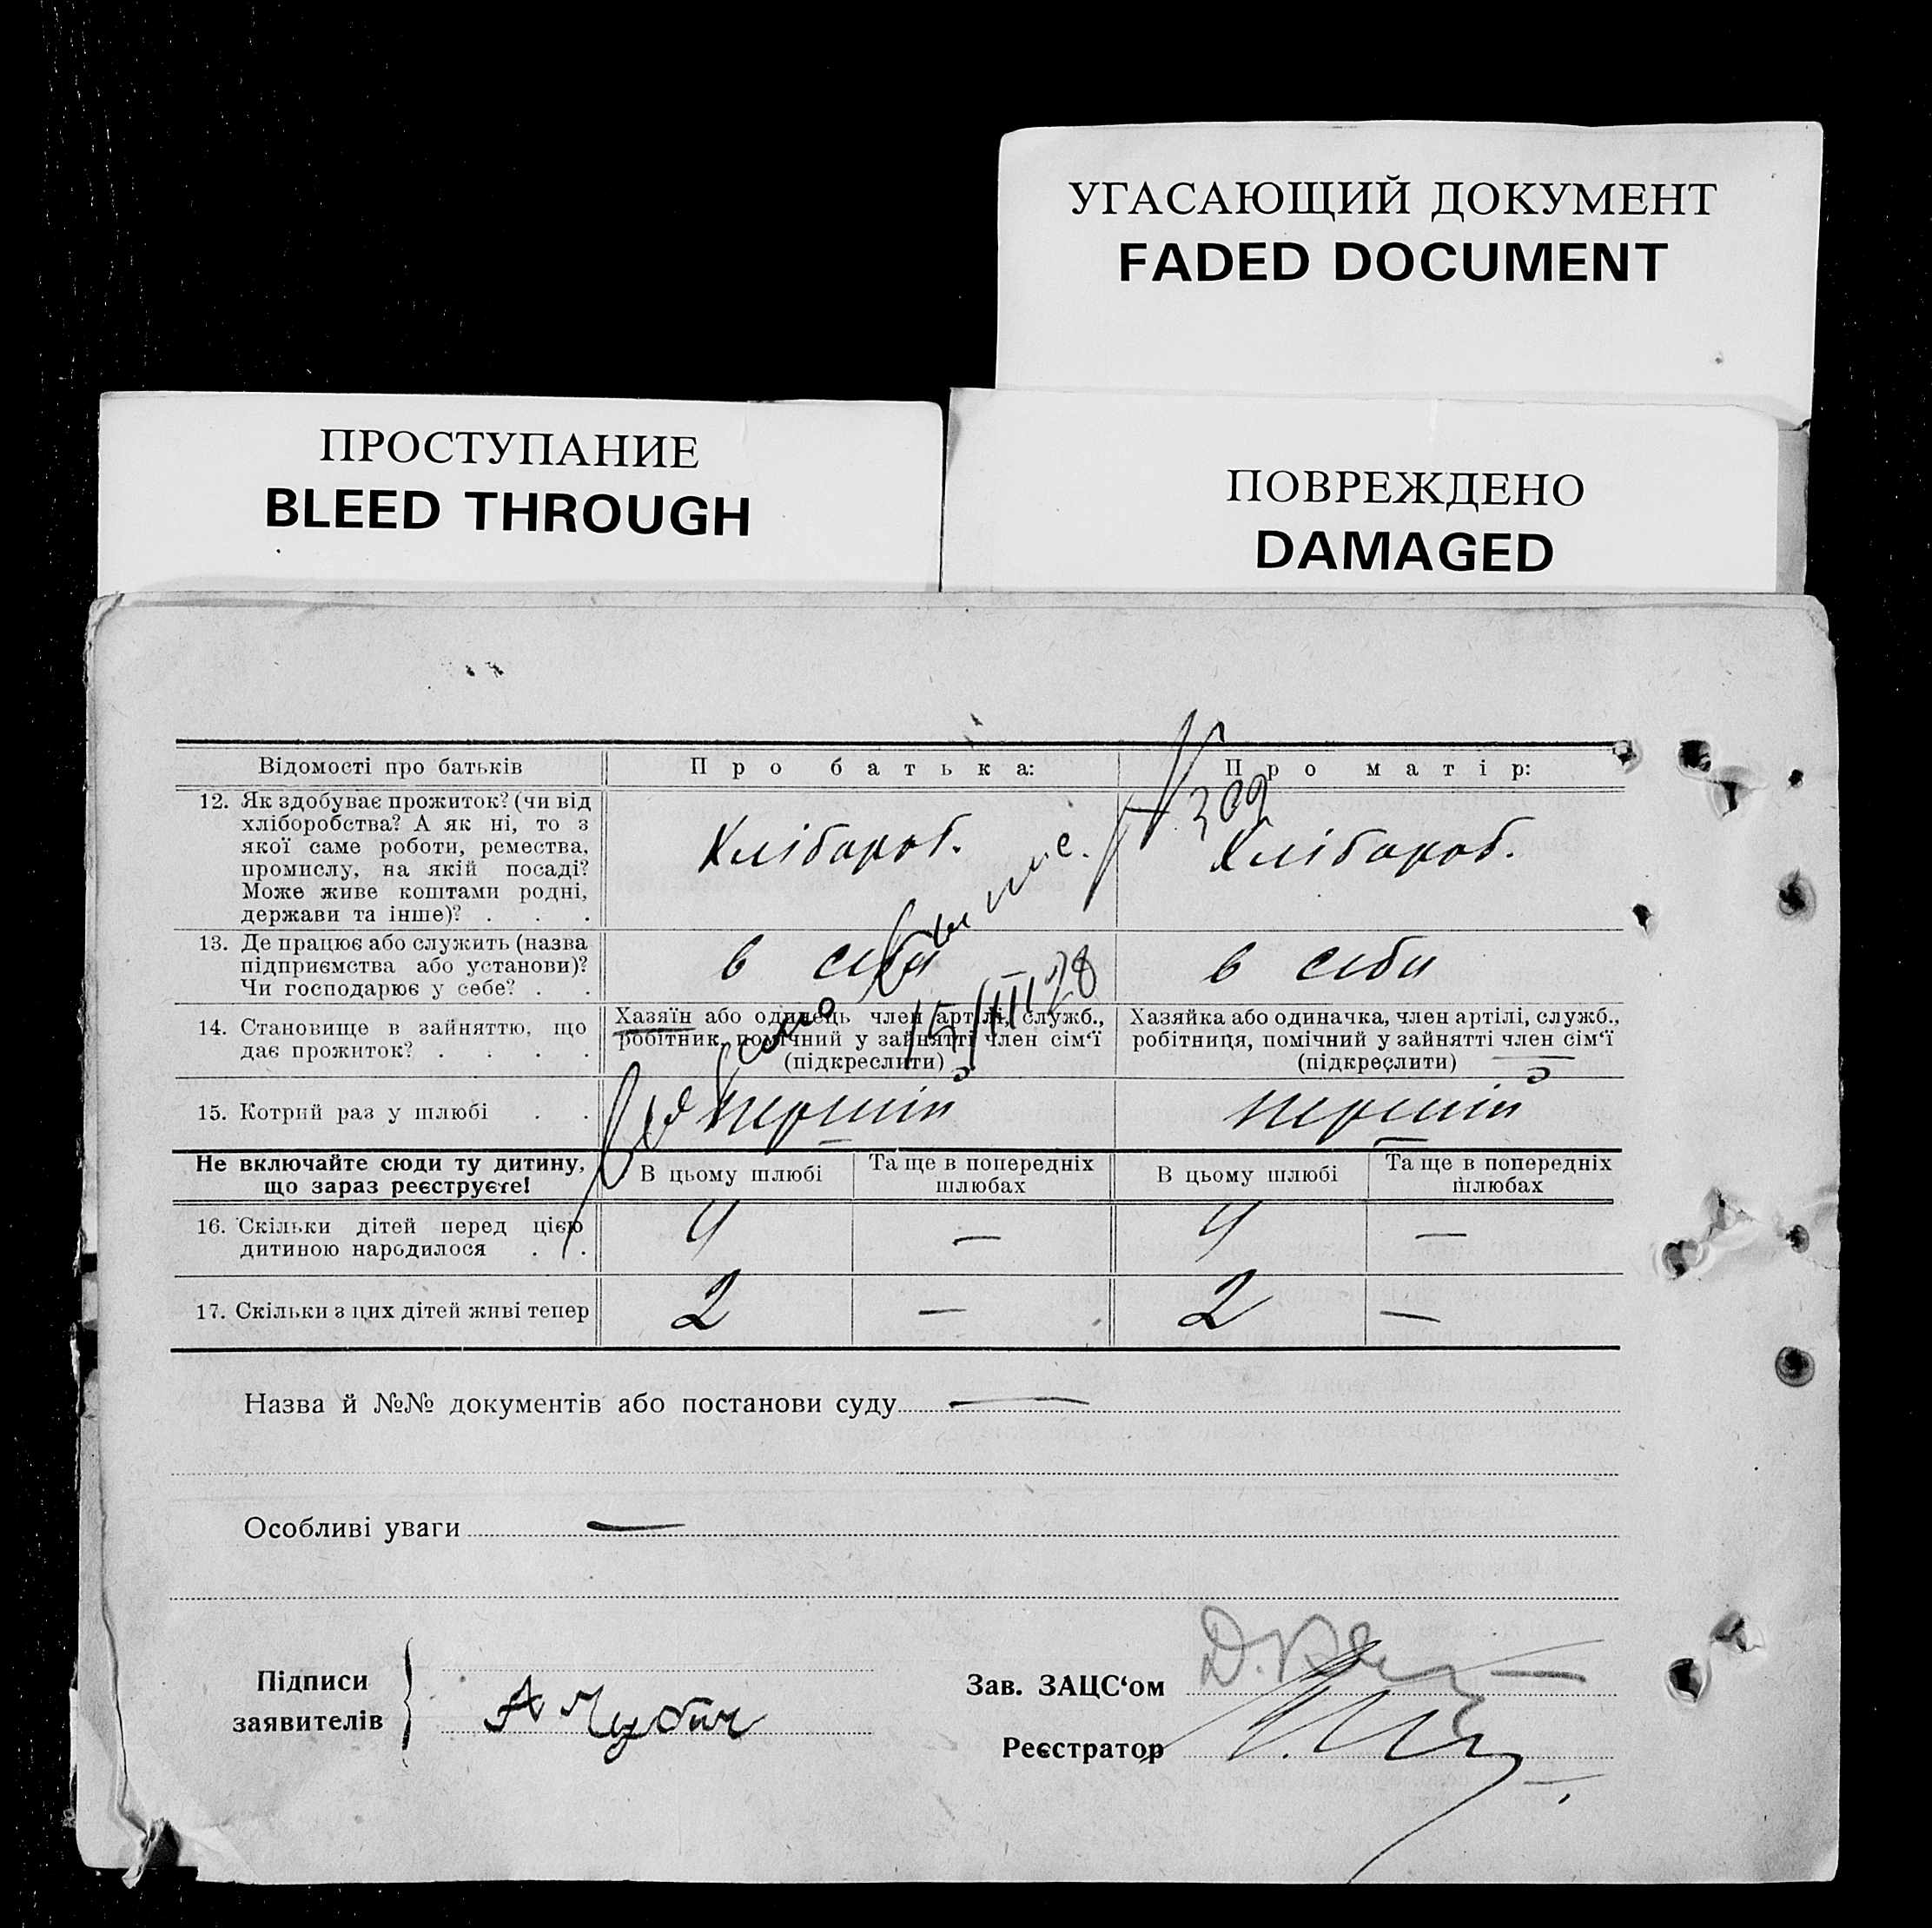 УГАСАЮЩИЙ ДОКУМЕНТ
FADED DOCUMENT
ПРОСТУПАНИЕ
BLEED THROUGH
ПОВРЕЖДЕНО
DAMAGED
Відомості про батьків
Про батька:
Про матір:
12. Як здобуває прожиток? (чи від
хліборобства? А як ні, то з
якої саме роботи, ремества,
промислу, на якій посаді?
Може живе коштами родні,
держави та інше)? . . .
Хлібороб.
Хлібороб.
№ 309
13. Де працює або служить (назва
підприємства або установи)?
Чи господарює у себе? . .
в себи
в себи
15/III 28
14. Становище в зайняттю, що
дає прожиток? . . . .
Хазяїн або одинець член артілі, служб.,
робітник, помічний у зайнятті член сім'ї
(підкреслити)
Хазяйка або одиначка, член артілі, служб.,
робітниця, помічний у зайнятті член сім'ї
(підкреслити)
15. Котрий раз у шлюбі . .
перший
перший
Не включайте сюди ту дитину,
що зараз реєструєте!
В цьому шлюбі
Та ще в попередніх
шлюбах
В цьому шлюбі
Та ще в попередніх
шлюбах
16. Скільки дітей перед цією
дитиною народилося . .
4 — 4 —
17. Скільки з цих дітей живі тепер
2 — 2 —
Назва й №№ документів або постанови суду —
Особливі уваги —
Підписи
заявителів
А Чубач
Зав. ЗАЦС'ом
Реєстратор